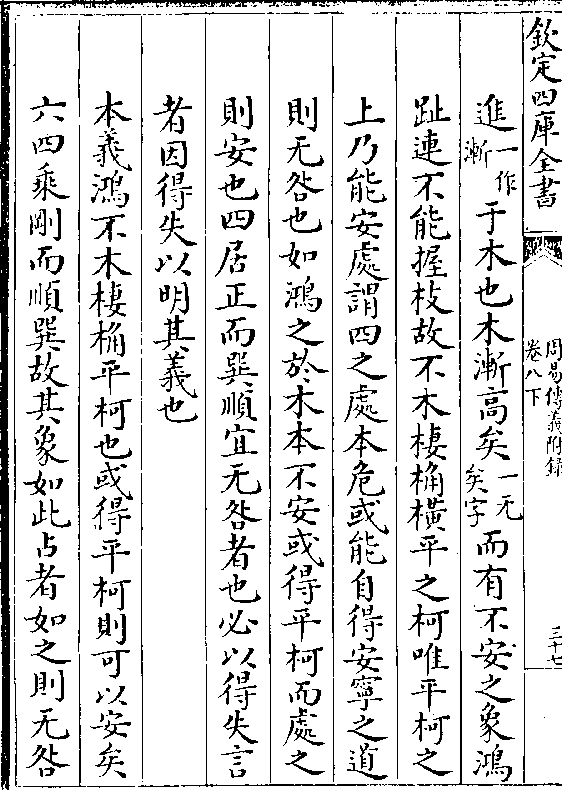 欽定四庫全書
周易傳義附錄
卷八下
三十七
進一作漸于木也木漸高矣一无矣字而有不安之象鴻
趾連不能握枝故不木棲桷橫平之柯唯平柯之
上乃能安處謂四之處本危或能自得安寧之道
則无咎也如鴻之於木本不安或得平柯而處之
則安也四居正而巽順宜无咎者也必以得失言
者因得失以明其義也
本義鴻不木棲桷平柯也或得平柯則可以安矣
六四乘剛而順巽故其象如此占者如之則无咎